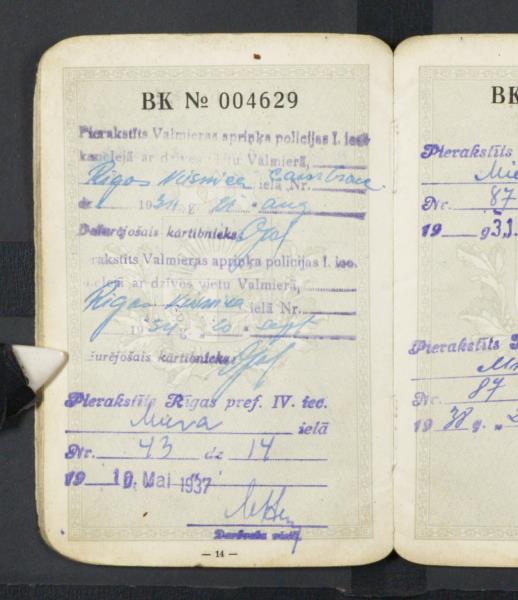 BK № 004629
Pierakstīts Valmieras apriņķa policijas I. iec.
kancelejā ar dzīves vietu Valmierā,
Rīgas ielā Nr.
dz. 1934 g. 21. aug
Dežurējošais kārtībnieks
erakstīts Valmieras apriņķa policijas I. iec.
celejā ar dzīves vietu Valmierā,
Rīgas ielā Nr.
1934 g. „ 20 " sept
žurējošais kārtībnieks
Pierakstīts Rīgas pref. IV. iec.
Miera ielā
Nr. 43 dz 14
19 10. Mai 1937
— 14 —
BK
Pierakstīts
Mie
Nr. 87
19 g 31.
Pierakstīts
Mi
Nr. 87
19 38 g. „